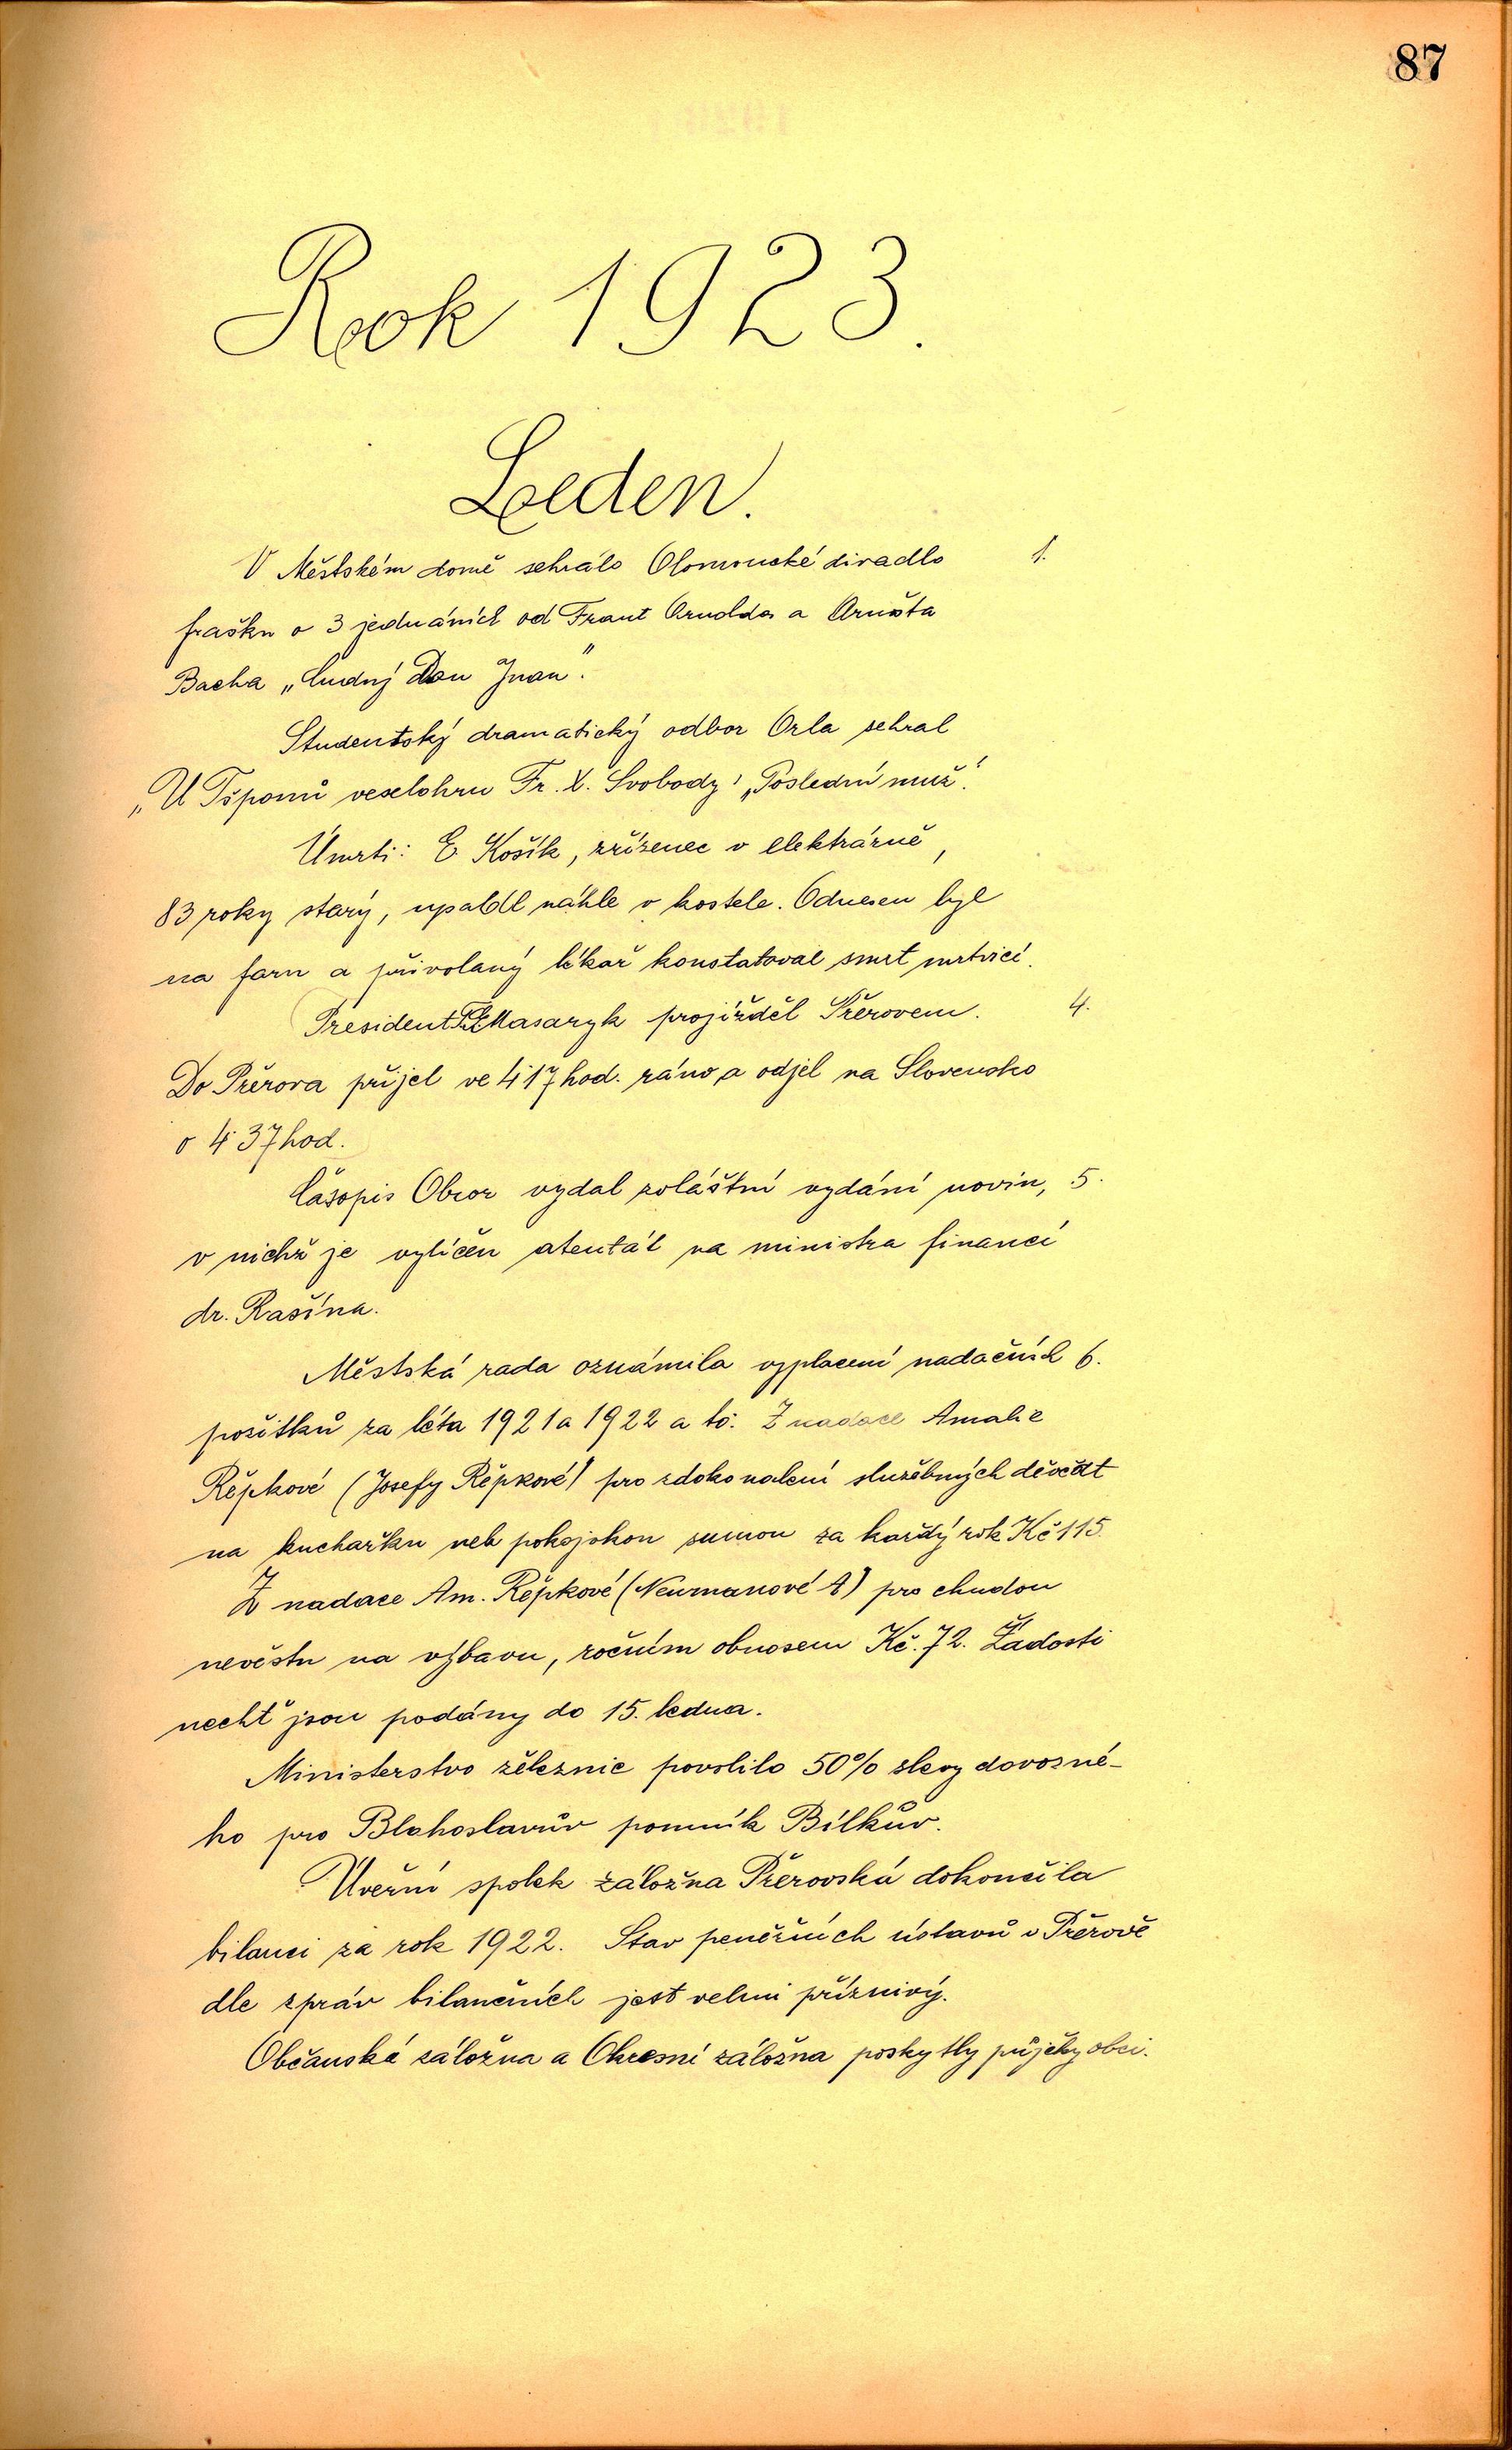 87
Rok 1923.
Leden.
V Městském domě sehrálo Olomoucké divadlo 1.
frašku o 3 jednáních od Frant Arnolda a Arnošta
Bacha „Ctudný Don Juan".
Studentský dramatický odbor Orla sehral
„U Tšponů veselohru Fr. X. Svobody „Poslední muž".
Úmrti: E Košík, zřízenec v elektrárně,
83 roky starý, upadl náhle v kostele. Odnesen byl
na faru a přivolaný lékař konstatoval smrt mrtvicí.
President TGMasaryk projížděl Přerovem. 4.
Do Přerova přijel ve 4·17 hod. ráno a odjel na Slovensko
o 4·37 hod.
Časopis Obzor vydal zvláštní vydání novin, 5.
v nichž je vylíčen atentát na ministra financí
dr. Rašína.
Městská rada oznámila vyplacení nadačních 6.
požitků za léta 1921 a 1922 a to: Z nadace Amalie
Řepkové (Josefy Řepkové) pro zdokonalení služebných děvčat
na kuchařku neb pokojskou sumou za každý rok Kč 115.
Z nadace Am. Řepkové (Neumanové A) pro chudou
nevěstu na výbavu, ročním obnosem Kč. 72. Žádosti
nechť jsou podány do 15. ledna.
Ministerstvo železnic povolilo 50% slevy dovozné-
ho pro Blahoslavův pomník Bílkův.
Úverní spolek záložna Přerovská dokončila
bilanci za rok 1922. Stav peněžních ústavů v Přerově
dle zpráv bilančních jest velmi příznivý.
Občanská záložna a Okresní záložna poskytly půjčky obci.